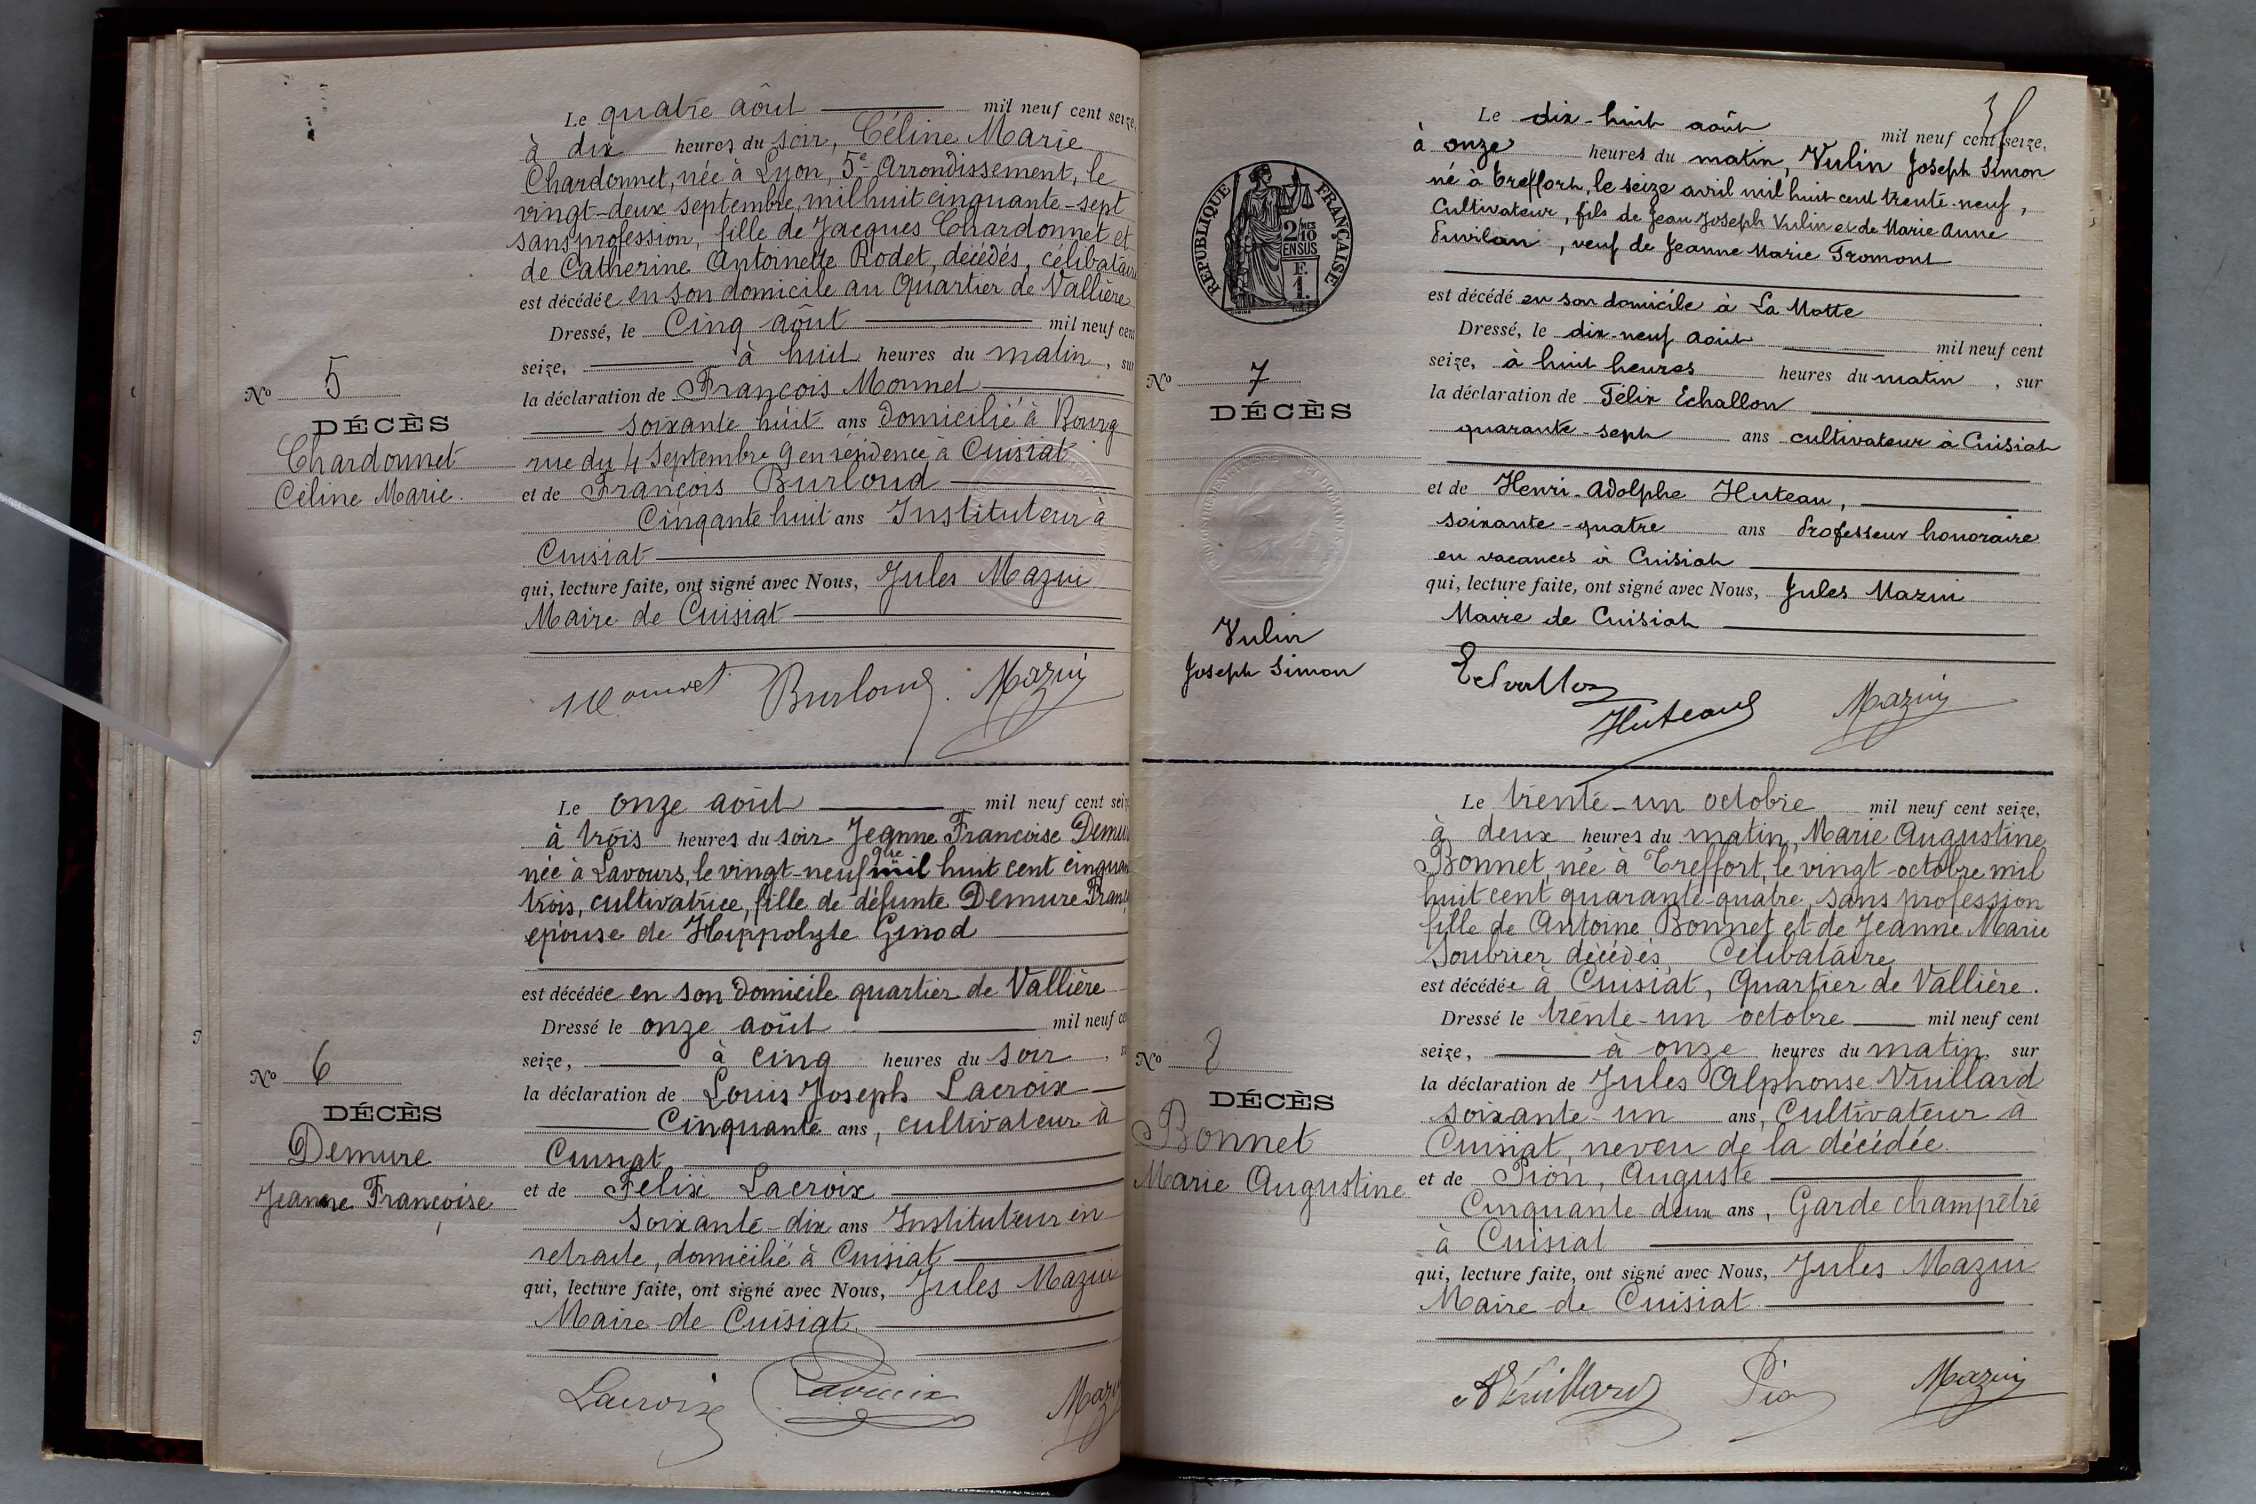 Le quatre août mil neuf cent seize,
à dix heures du soir, Céline Marie
Chardonnet, née à Lyon, 5e Arrondissement, le
vingt-deux septembre mil huit cinquante-sept
sans profession, fille de Jacques Chardonnet et
de Catherine Antoinette Rodet, décédés, célibataire
est décédée en son domicile au Quartier de Vallière
Dressé, le Cinq août mil neuf cent
seize, à huit heures du matin, sur
la déclaration de François Monnet
soixante huit ans domicilié à Bourg
rue du 4 Septembre 9 en résidence à Cuisiat
et de François Burloud
Cinqante huit ans Instituteur à
Cuisiat
qui, lecture faite, ont signé avec Nous, Jules Mazui
Maire de Cuisiat
No 5
DÉCÈS
Chardonnet
Céline Marie.
Monnet Burloud Mazui
Le onze août mil neuf cent seize
à trois heures du soir Jeanne Francoise
née à Lavours, le vingt-neuf mil huit cent cinquante
trois, cultivatrice, fille de défunte Demure
épouse de Hippolyte Ginod
est décédée en son domicile quartier de Vallière
Dressé le onze août mil neuf cent
seize, à cinq heures du soir
la déclaration de Louis Joseph Lacroix
Cinquante ans, cultivateur à
Cuisiat
et de Felix Lacroix
soixante-dix ans Instituteur en
retraite, domicilié à Cuisiat
qui, lecture faite, ont signé avec Nous, Jules Mazui
Maire de Cuisiat
No 6
DÉCÈS
Demure
Jeanne Françoise
Lacroix Lacroix
Le dix-huit août mil neuf cent seize,
à onze heures du matin, Vulin Joseph Simon
né à Treffort, le seize avril mil huit cent trente-neuf,
Cultivateur, fils de Jean Joseph Vulin et de Marie Anne
, veuf de Jeanne Marie Fromont
est décédé en son domicile à La Motte
Dressé, le dix-neuf août mil neuf cent
seize, à huit heures heures du matin, sur
la déclaration de Félix Echallon
quarante-sept ans cultivateur à Cuisiat
et de Henri-Adolphe Huteau,
soixante-quatre ans Professeur honoraire
en vacances à Cuisiat
qui, lecture faite, ont signé avec Nous, Jules Mazui
Maire de Cuisiat
REPUBLIQUE FRANÇAISE
2/10
EN SUS
F.
1.
No 7
DÉCÈS
Vulin
Joseph Simon
Echallon
Huteau Mazui
Le trente-un octobre mil neuf cent seize,
à deux heures du matin, Marie Augustine
Bonnet, née à Treffort, le vingt-octobre mil
huit cent quarante-quatre, sans profession
fille de Antoine Bonnet et de Jeanne Marie
Soubrier décédés, Célibataire
est décédée à Cuisiat, Quartier de Vallière.
Dressé le trente-un octobre mil neuf cent
seize, à onze heures du matin, sur
la déclaration de Jules Alphonse Vuillard
soixante-un ans, Cultivateur à
Cuisiat, neveu de la décédée.
et de Pion, Auguste
Cinquante-deux ans, Garde champêtre
à Cuisiat
qui, lecture faite, ont signé avec Nous, Jules Mazui
Maire de Cuisiat
No 8
DÉCÈS
Bonnet
Marie Augustine
Vuillard Pion Mazui